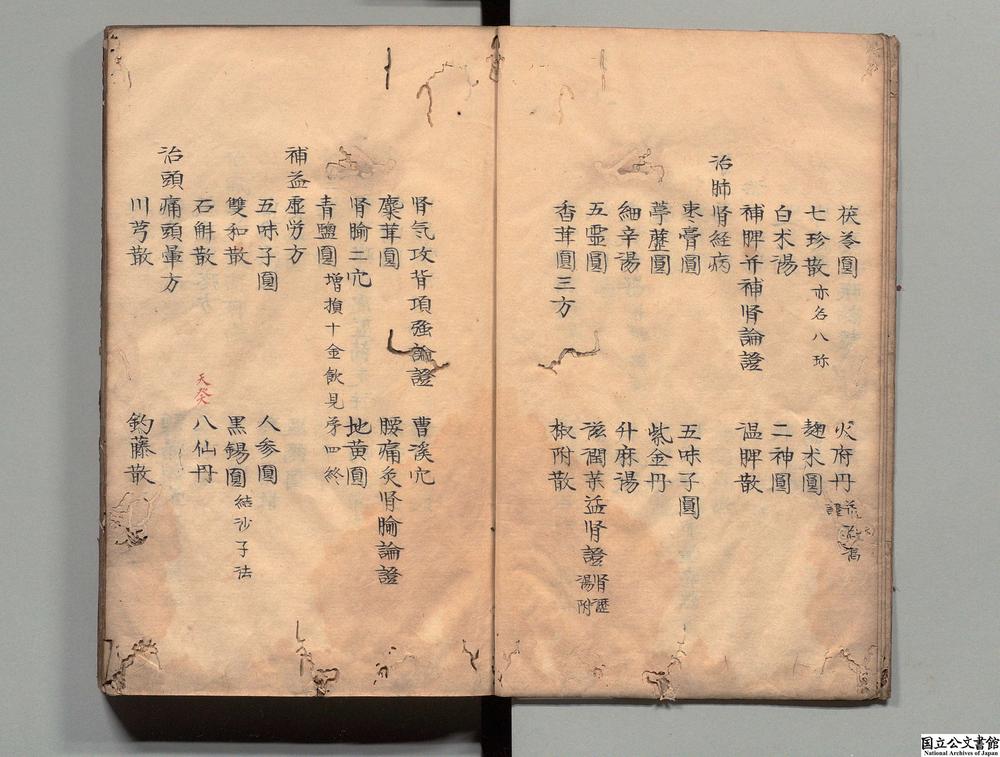 茯苓圓　火府丹
七珍散 亦名八珎　麹术圓
白术湯　二神圓
補脾并補腎論證　温脾散
治肺腎經病
枣膏圓　五味子圓
葶藶圓　紫金丹
細辛湯　升麻湯
五靈圓　滋潤葉益腎證 腎瀝湯附
香茸圓三方　椒附散
腎気攻背項強論證　曹溪穴
麋茸圓　腰痛灸腎腧論證
腎腧二穴　地黄圓
青鹽圓 增損十金飲見序四終
補益虛労方
五味子圓　人参圓
雙和散　黒錫圓 結沙子法
石斛散　天癸　八仙丹
治頭痛頭暈方
川芎散　釣藤散
国立公文書館
National Archives of Japan